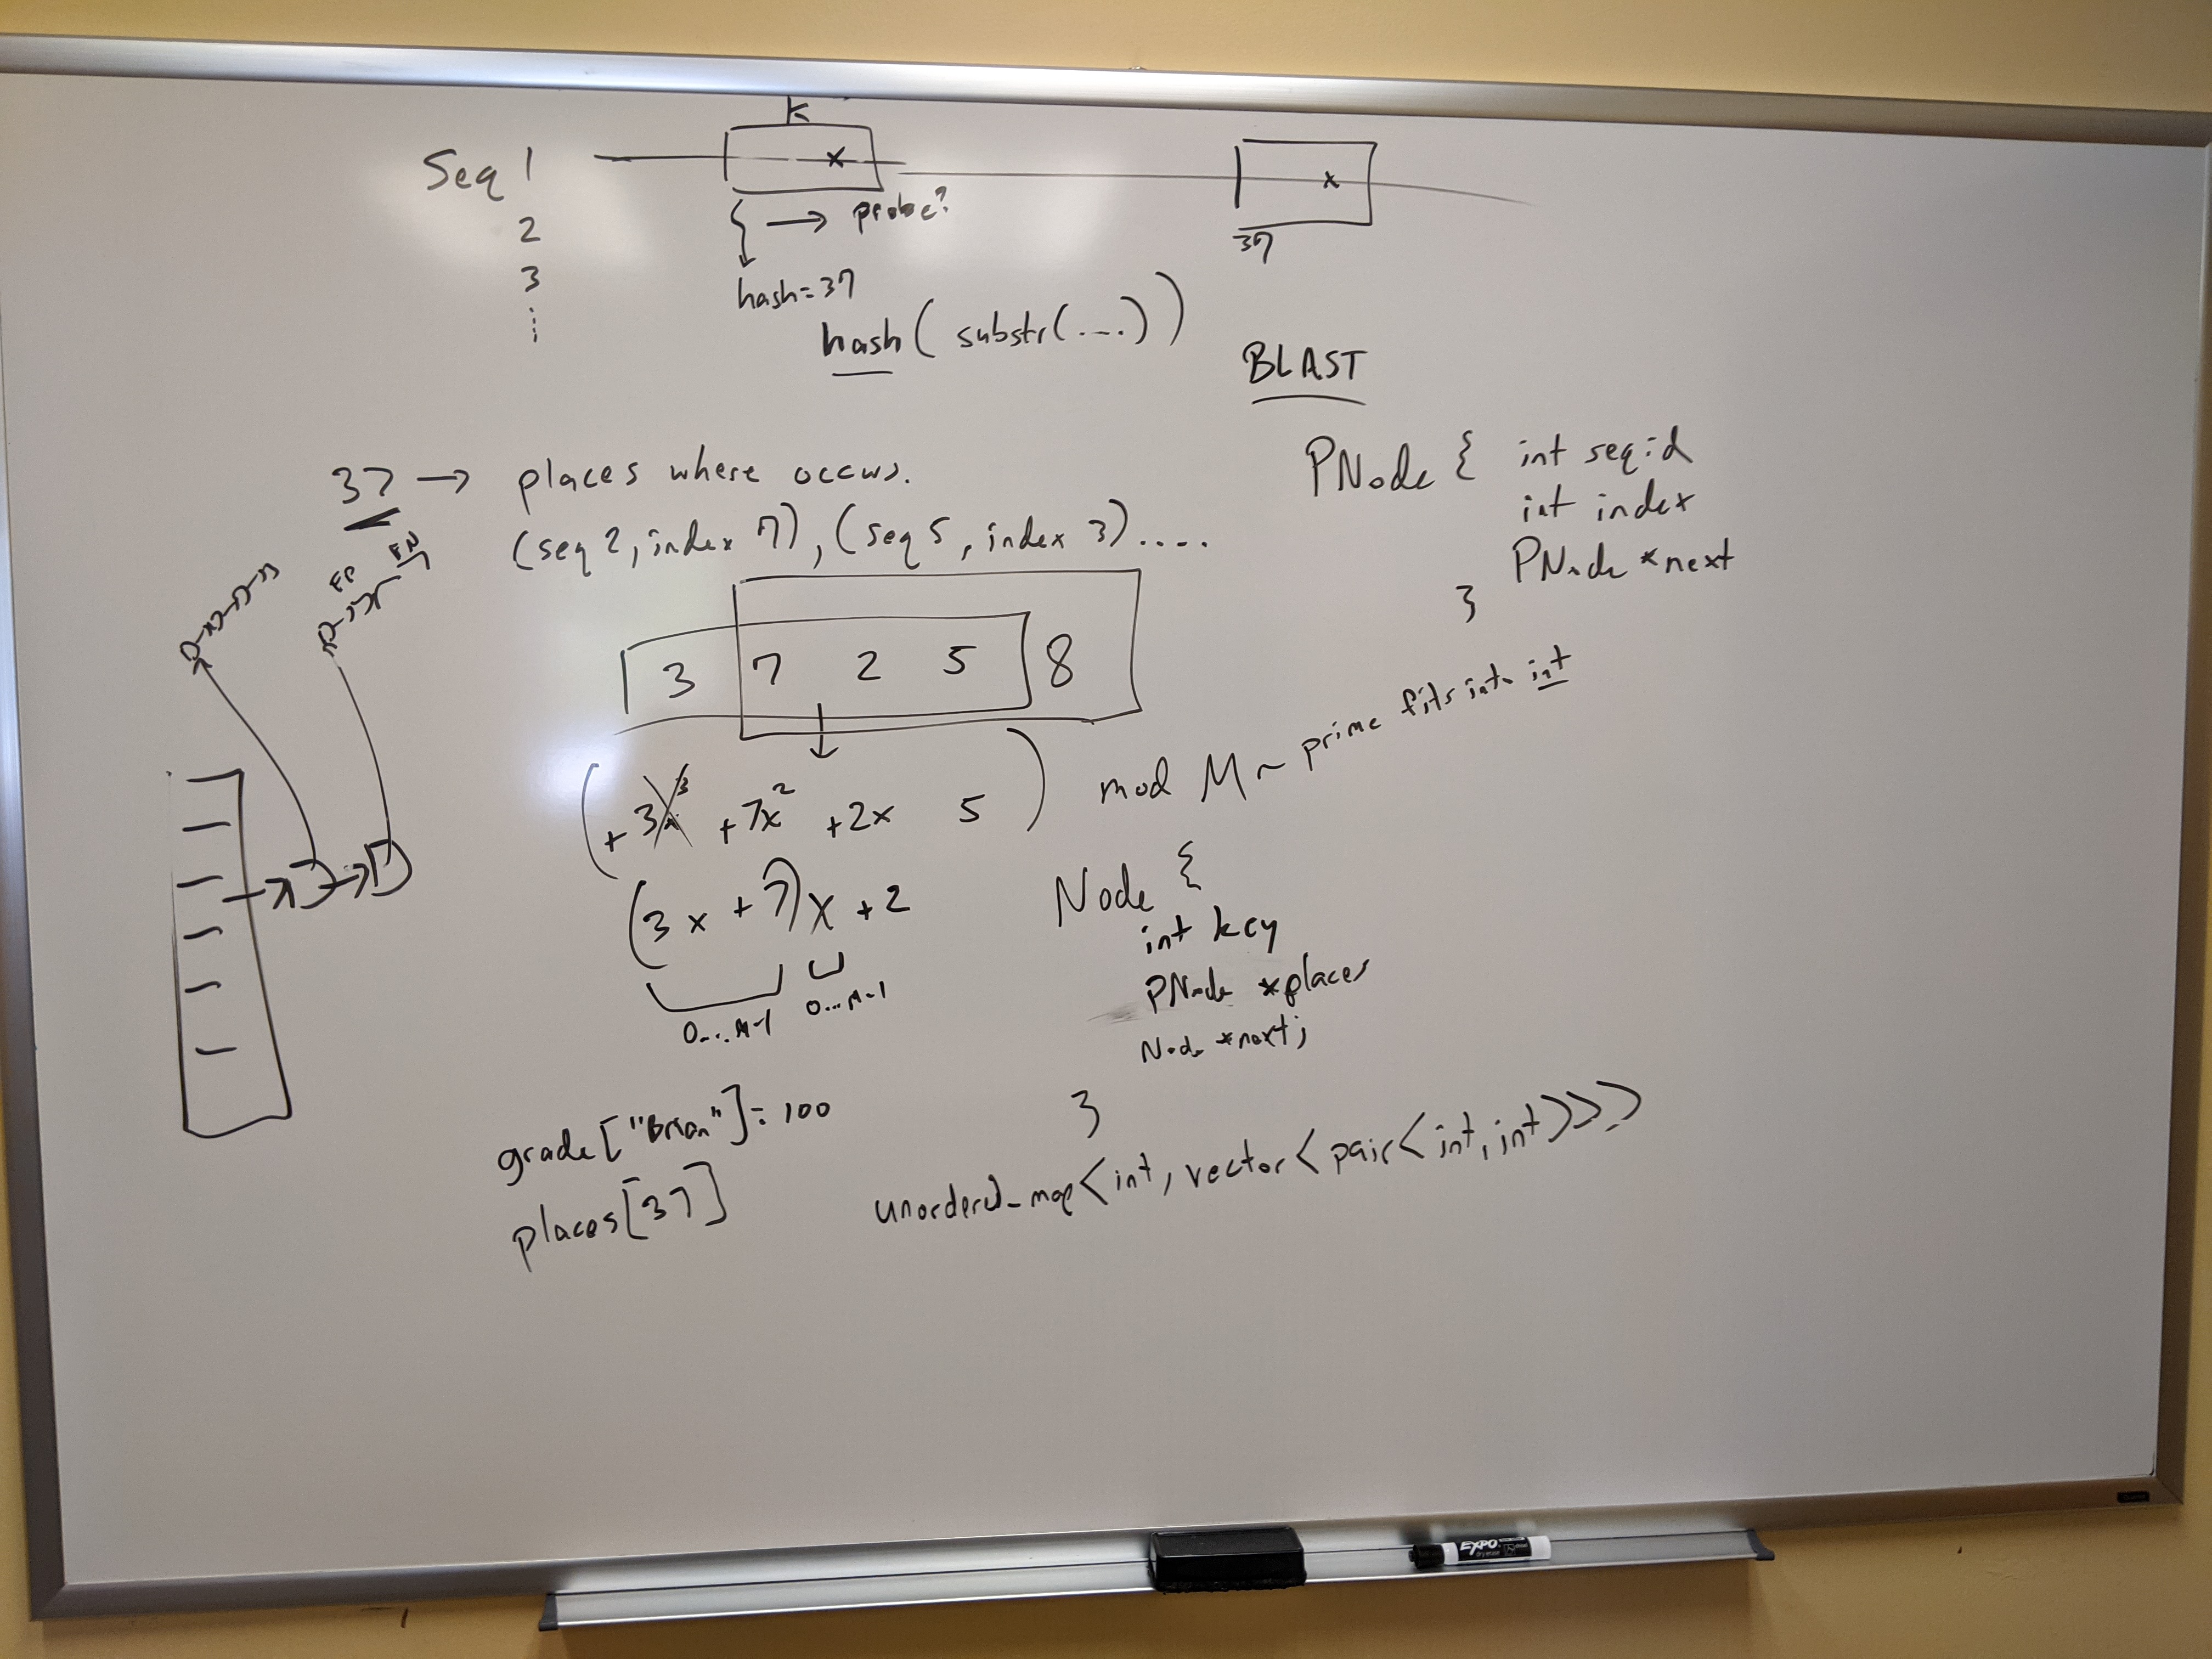 k
Seq 1 x x
2 → probe?
3 37
⋮ hash=37
hash(substr(....))
BLAST
37 → places where occurs.
(seq 2, index 7), (seq 5, index 3)....
PNode { int seqid
int index
PNode *next
}
FP FN
3 7 2 5 8
(+3x³ +7x² +2x 5) mod M ~ prime fits into int
(3x + 7)x + 2
0...M-1 0...M-1
Node {
int key
PNode *places
Node *next;
}
grade["Brian"]=100
places[37]
unordered_map<int, vector<pair<int, int>>>
EXPO